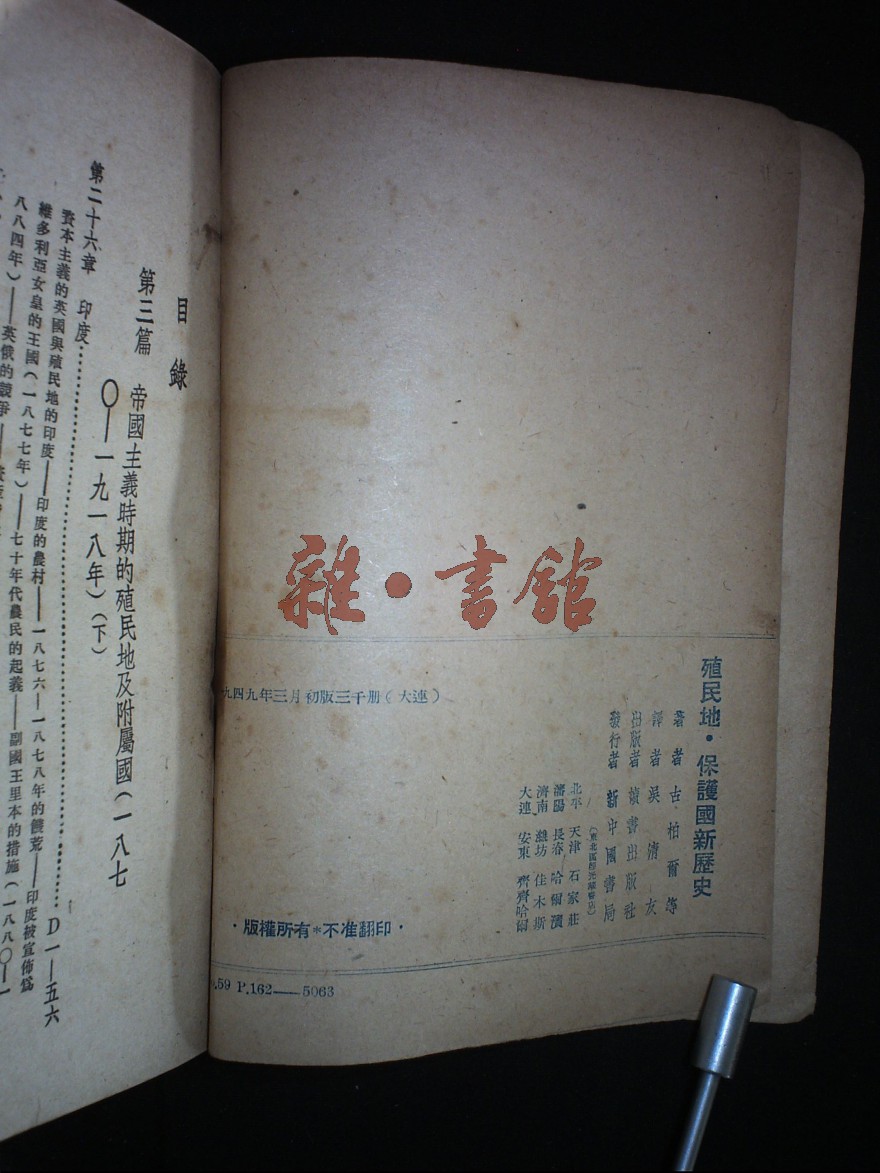 殖民地・保護國新歷史
著者 古柏爾等
譯者 吳清友
出版者 讀書出版社
發行者 新中國書局
(東北區經光華書店)
北平 天津 石家莊
瀋陽 長春 哈爾濱
濟南 濰坊 佳木斯
大連 安東 齊齊哈爾
九四九年三月初版三千册(大連)
・版權所有*不准翻印・
.59 P.162——5063
雜・書館
目錄
第三篇 帝國主義時期的殖民地及附屬國(一八七
〇—一九一八年)(下)
第二十六章 印度⋯⋯⋯⋯⋯⋯⋯⋯⋯⋯⋯⋯D一—五六
資本主義的英國與殖民地的印度——印度的農村——一八七六—一八七八年的饑荒——印度被宣佈爲
維多利亞女皇的王國(一八七七年)——七十年代農民的起義——副國王里本的措施(一八八〇—一
八八四年)——英俄的競爭——